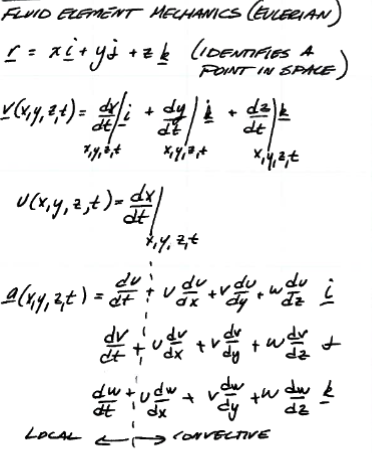 FLUID ELEMENT MECHANICS (EULERIAN)
r = x i + y j + z k (IDENTIFIES A
POINT IN SPACE)
v(x,y,z,t) = dx/dt| i + dy/dt| j + dz/dt| k
x,y,z,t x,y,z,t x,y,z,t
u(x,y,z,t) = dx/dt|
x,y,z,t
a(x,y,z,t) = du/dt + u du/dx + v du/dy + w du/dz i
dv/dt + u dv/dx + v dv/dy + w dv/dz j
dw/dt + u dw/dx + v dw/dy + w dw/dz k
LOCAL ← → CONVECTIVE